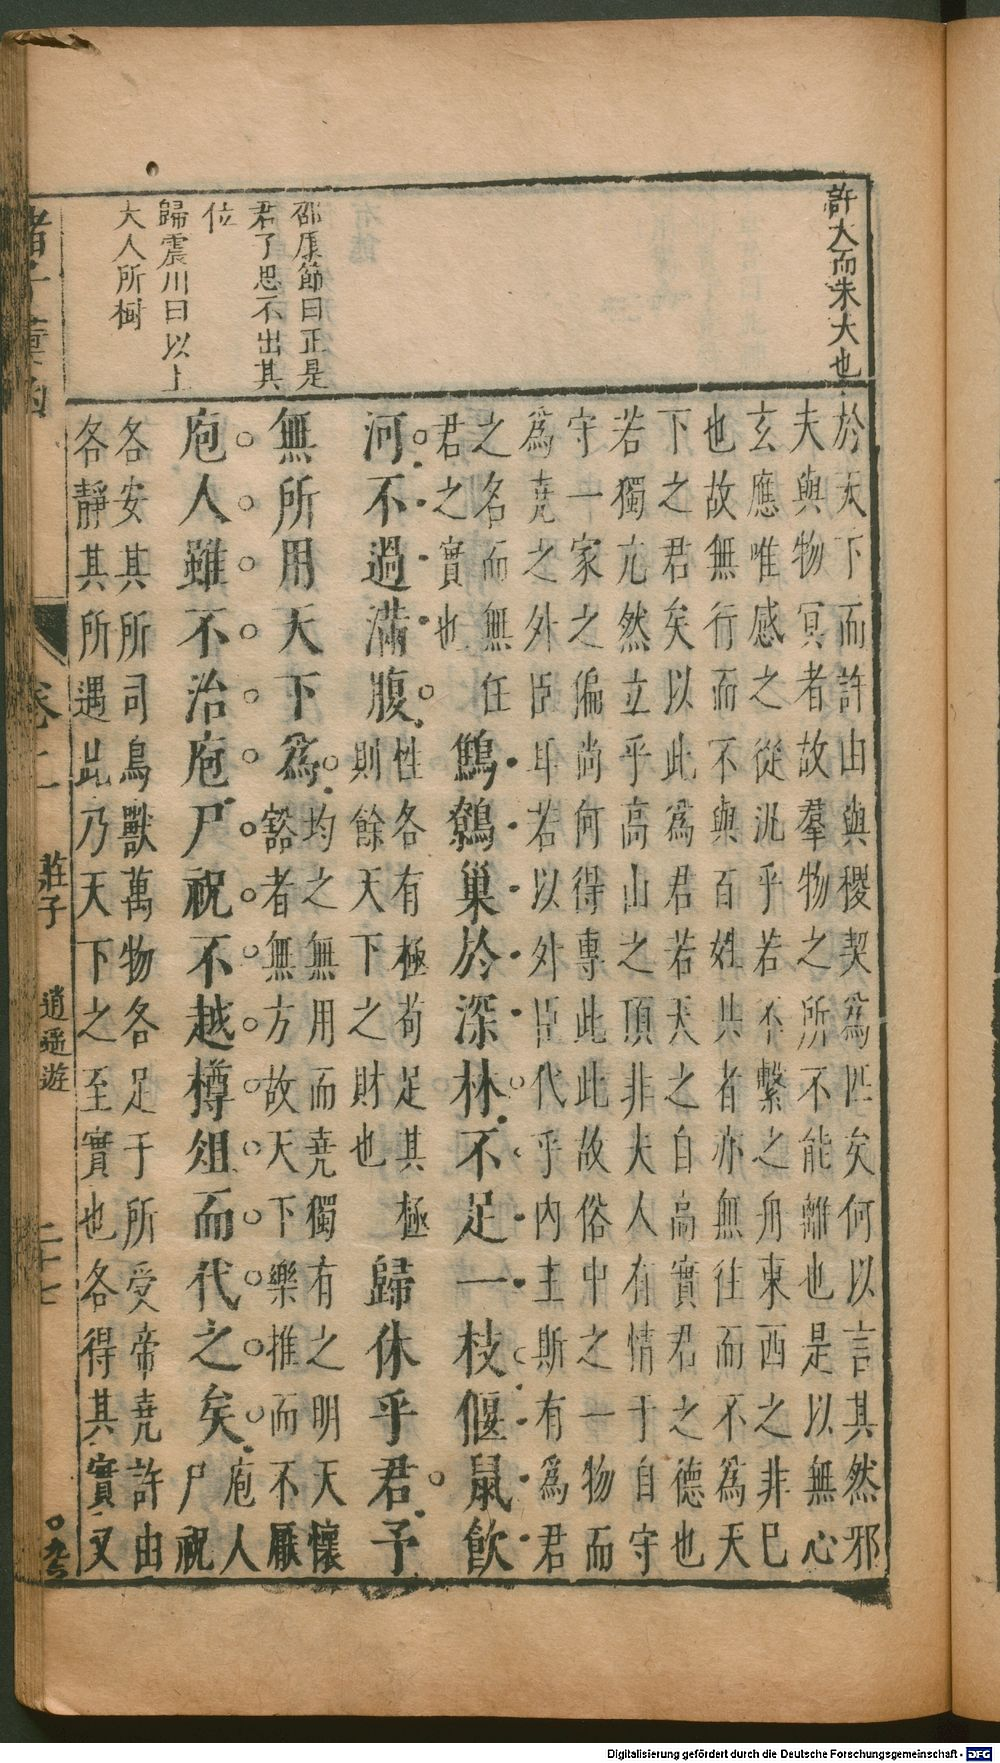 許大而朱大也
邵康節曰正是
君子思不出其
位
歸震川曰以上
大人所樹
於天下而許由與稷契為匹矣何以言其然邪
夫與物冥者故羣物之所不能離也是以無心
玄應唯感之從汎乎若不繫之舟東西之非巳
也故無行而不與百姓共者亦無往而不為天
下之君矣以此為君若天之自高實君之德也
若獨亢然立乎高山之頂非夫人有情于自守
守一家之偏尚何得專此此故俗中之一物而
為堯之外臣耳若以外臣代乎內主斯有為君
之名而無任
君之實也
鷦鷯巢於深林不足一枝偃鼠飲
河不過滿腹
性各有極苟足其極
則餘天下之財也
歸休乎君予
無所用天下為
均之無用而堯獨有之明天懷
豁者無方故天下樂推而不厭
庖人雖不治庖尸祝不越樽俎而代之矣
庖人
尸祝
各安其所司鳥獸萬物各足于所受帝堯許由
各靜其所遇此乃天下之至實也各得其實又
諸子彙函
卷二
莊子
逍遥遊
二十七
Digitalisierung gefördert durch die Deutsche Forschungsgemeinschaft - DFG